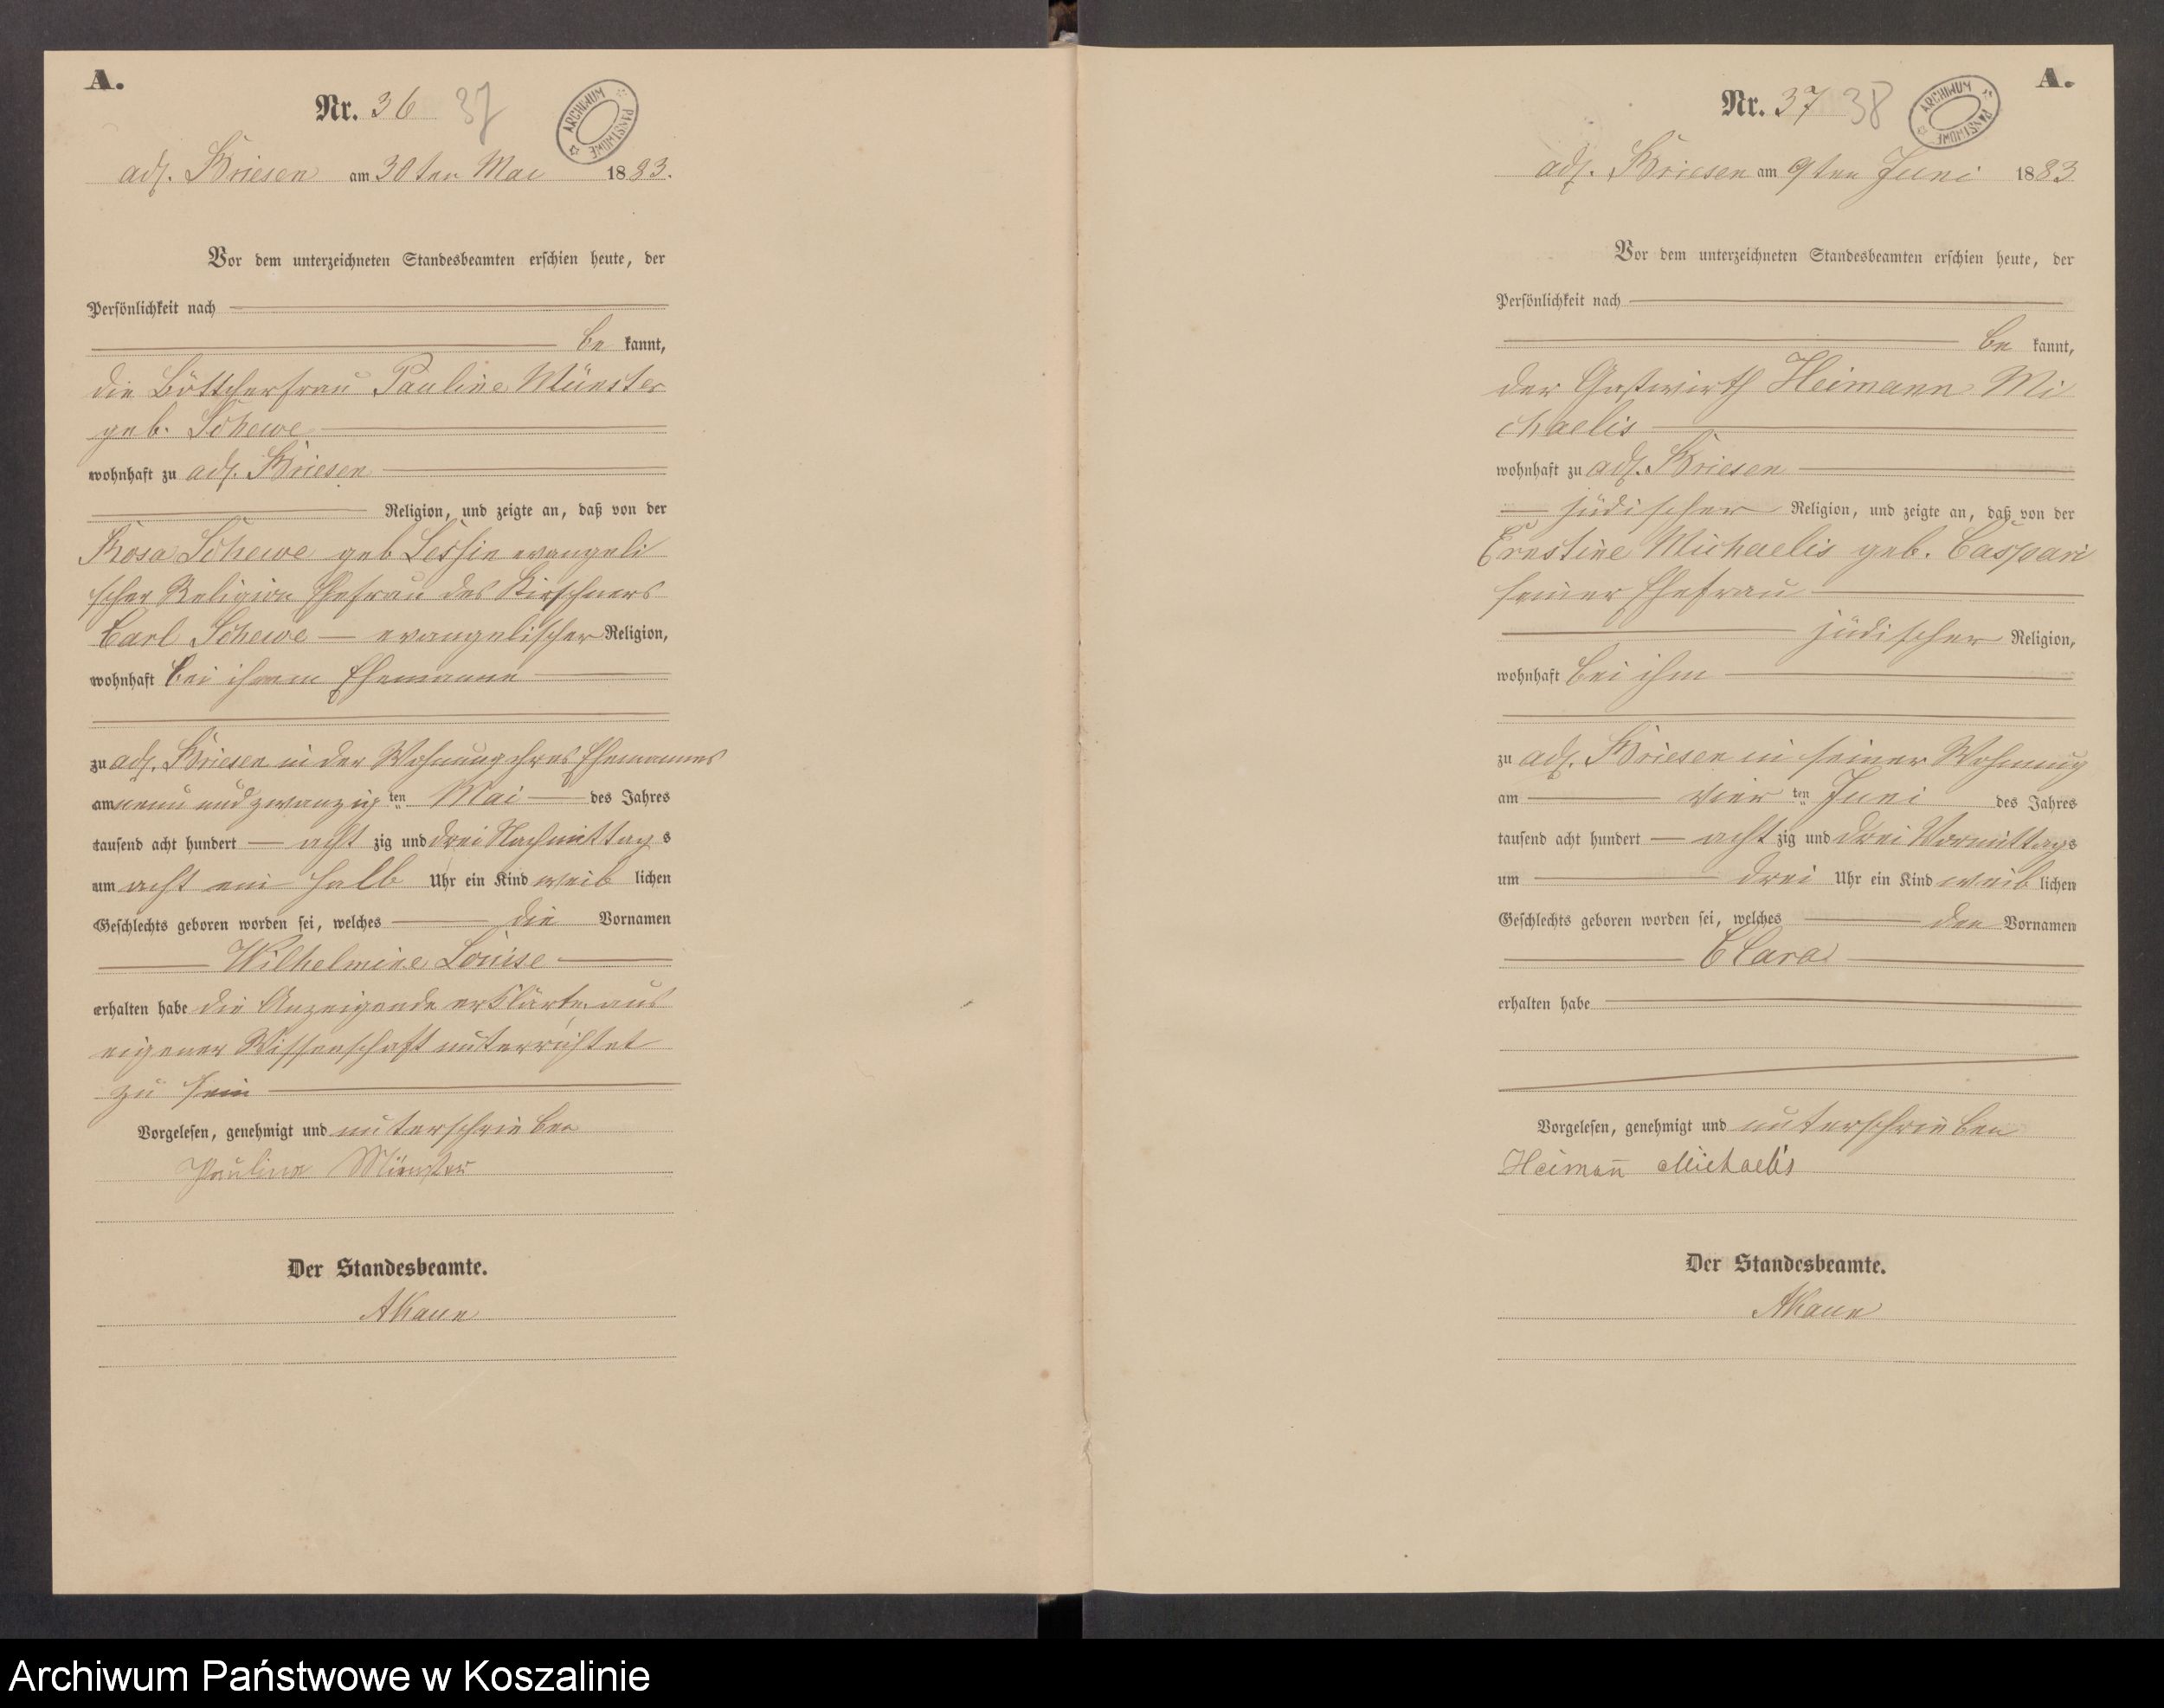 A.
Nr. 36 37
ARCHIWUM PAŃSTWOWE
adl. Briesen am 30ten Mai 1883.
Vor dem unterzeichneten Standesbeamten erschien heute, der
Persönlichkeit nach
be kannt,
die Böttcherfrau Pauline Münster
geb. Schewe
wohnhaft zu adl. Briesen
Religion, und zeigte an, daß von der
Rosa Schewe geb evangeli
scher Religion Ehefrau des
Carl Schewe evangelischer Religion,
wohnhaft bei ihrem Ehemanne
zu adl. Briesen in der Wohnung ihres Ehemannes
am neun und zwanzig ten Mai des Jahres
tausend acht hundert acht zig und drei Nachmittags
um acht ein halb Uhr ein Kind weib lichen
Geschlechts geboren worden sei, welches die Vornamen
Wilhelmine Louise
erhalten habe die Anzeigende erklärte aus
eigener Wissenschaft unterrichtet
zu sein
Vorgelesen, genehmigt und unterschrieben
Pauline Münster
Der Standesbeamte.
A.
Nr. 37 38
ARCHIWUM PAŃSTWOWE
adl. Briesen am 9ten Juni 1883
Vor dem unterzeichneten Standesbeamten erschien heute, der
Persönlichkeit nach
be kannt,
der Gastwirth Heimann Mi
chaelis
wohnhaft zu adl. Briesen
jüdischer Religion, und zeigte an, daß von der
Ernstine Michaelis geb. Caspari
seiner Ehefrau
jüdischer Religion,
wohnhaft bei ihm
zu adl. Briesen in seiner Wohnung
am vier ten Juni des Jahres
tausend acht hundert acht zig und drei Vormittags
um drei Uhr ein Kind weib lichen
Geschlechts geboren worden sei, welches den Vornamen
Clara
erhalten habe
Vorgelesen, genehmigt und unterschrieben
Heimann Michaelis
Der Standesbeamte.
Archiwum Państwowe w Koszalinie